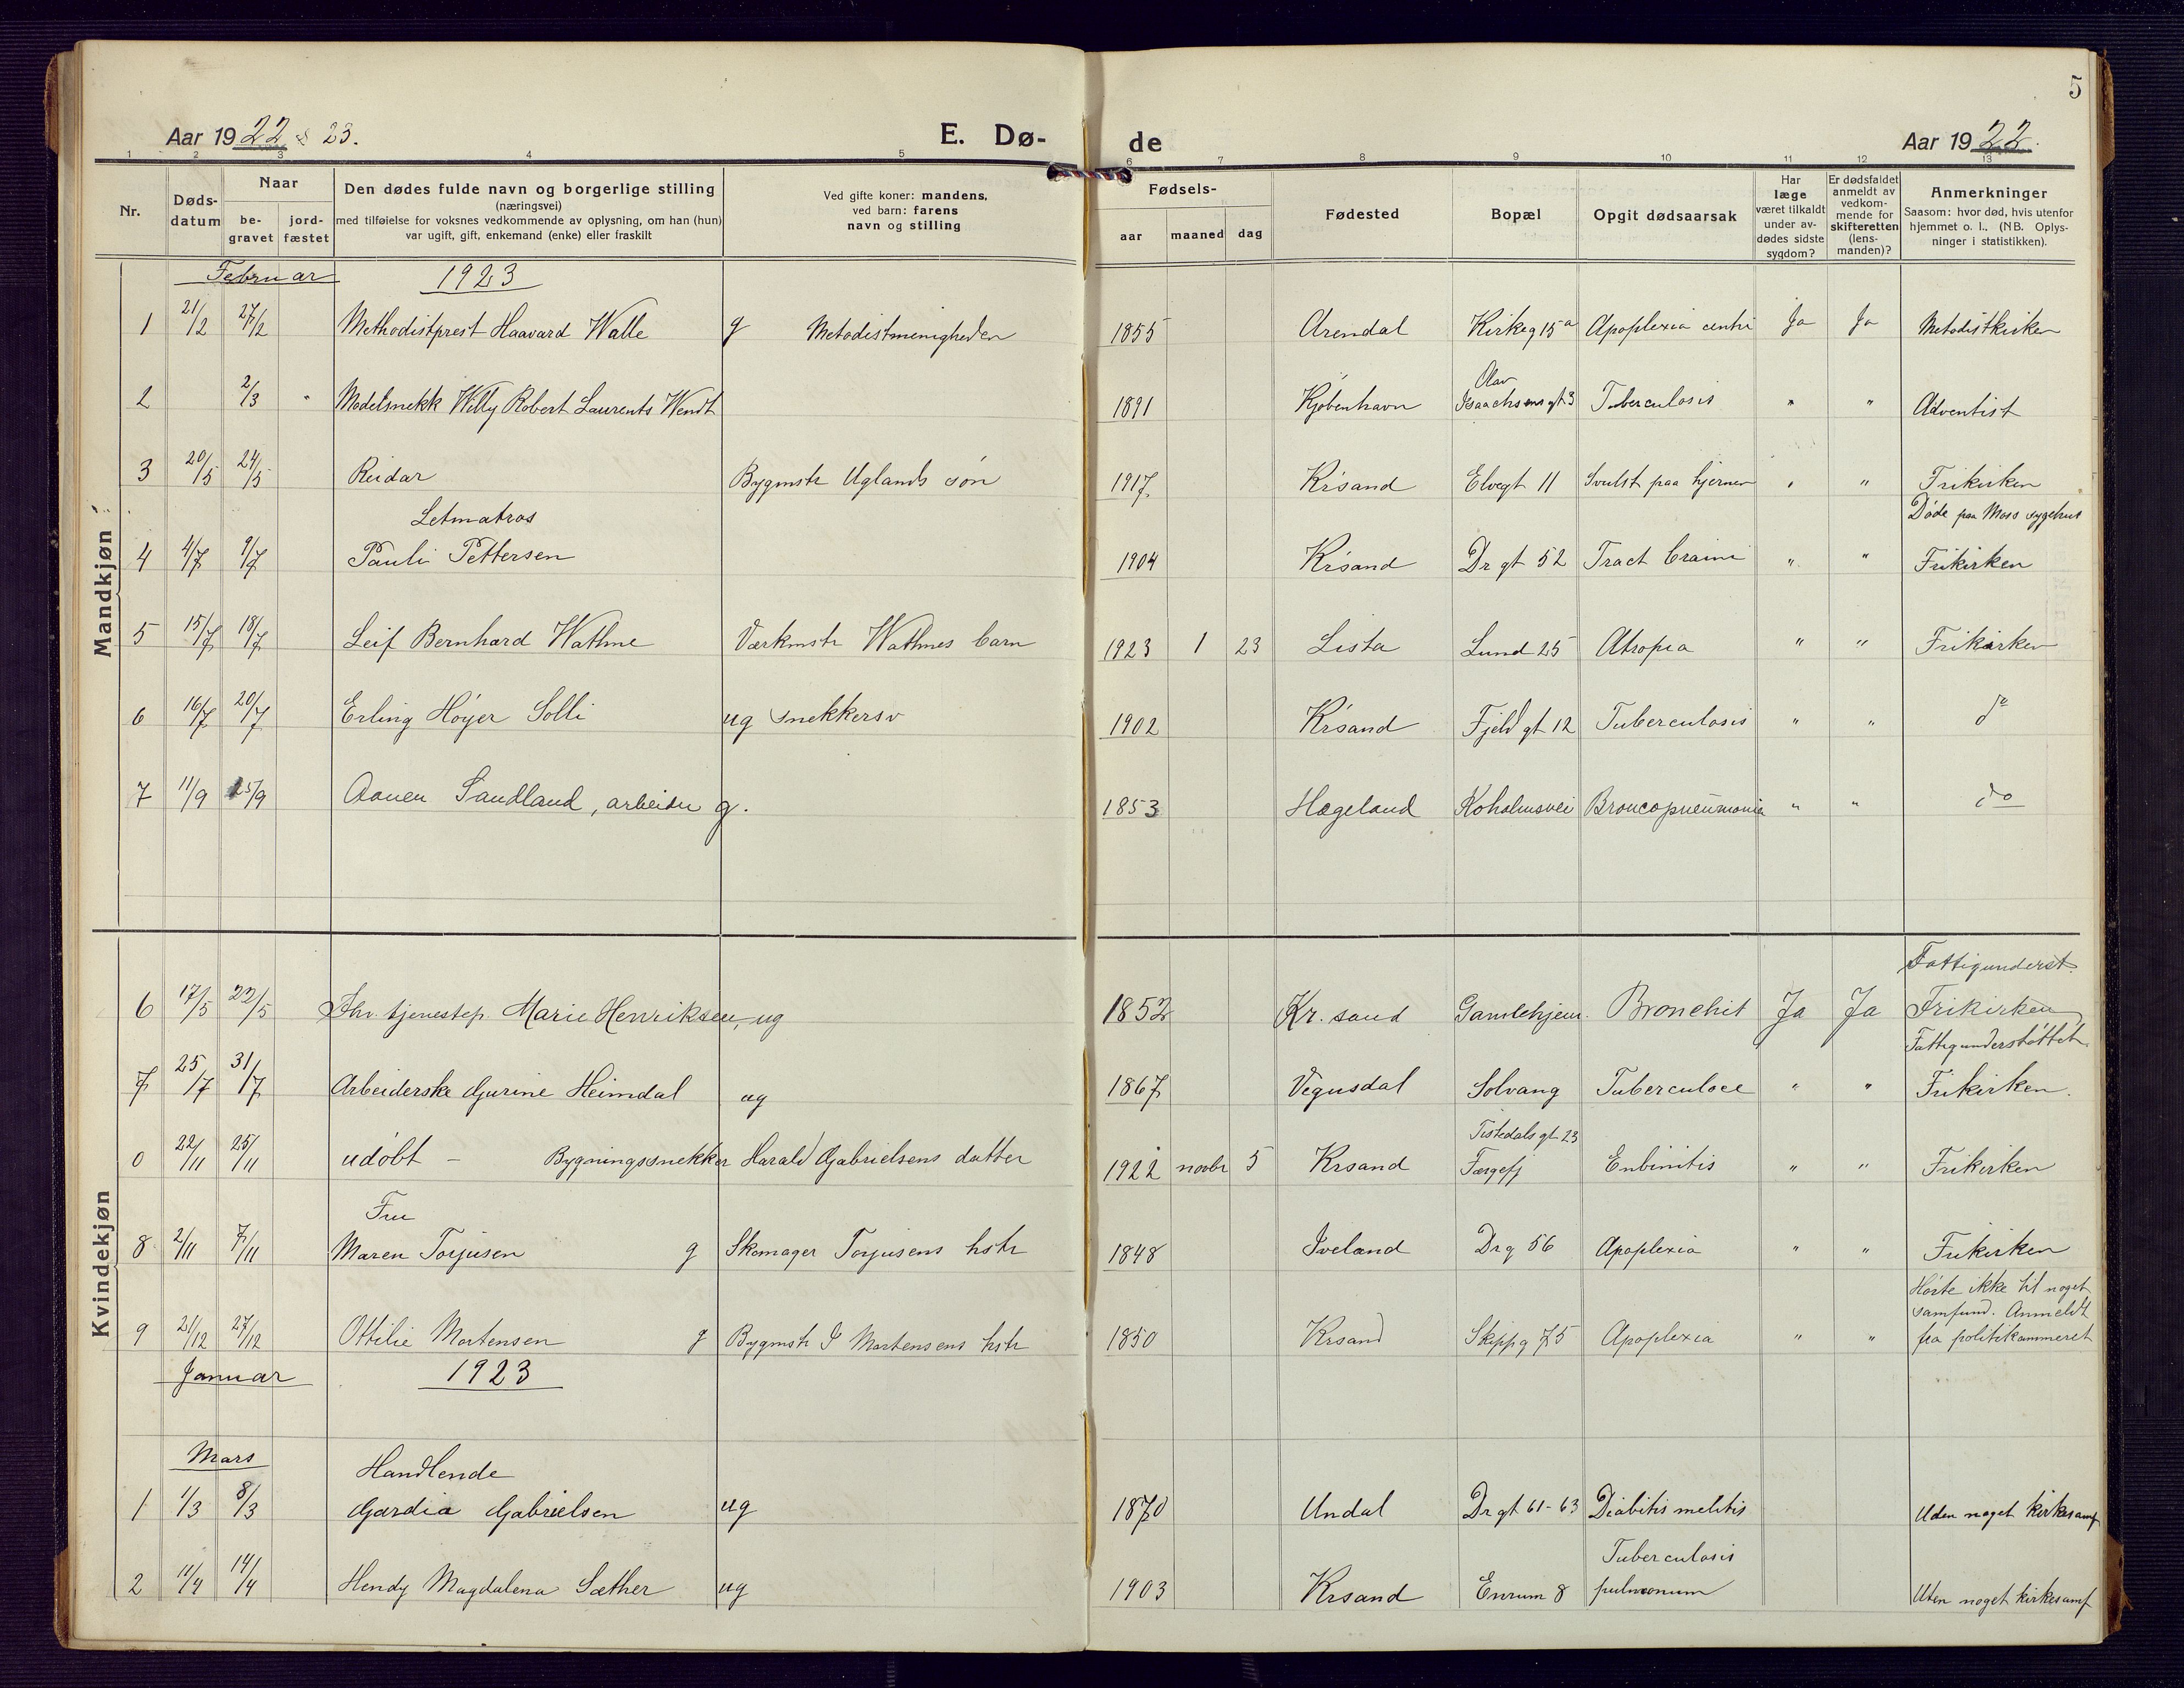 5
Aar 1922 & 23.
E. Dø-
de
Aar 1922.
1 2 3 4 5 6 7 8 9 10 11 12 13
Nr.
Døds-
datum
Naar
be-
gravet
jord-
fæstet
Den dødes fulde navn og borgerlige stilling
(næringsvei)
med tilføielse for voksnes vedkommende av oplysning, om han (hun)
var ugift, gift, enkemand (enke) eller fraskilt
Ved gifte koner: mandens,
ved barn: farens
navn og stilling
Fødsels-
aar maaned dag
Fødested
Bopæl
Opgit dødsaarsak
Har
læge
været tilkaldt
under av-
dødes sidste
sygdom?
Er dødsfaldet
anmeldt av
vedkom-
mende for
skifteretten
(lens-
manden)?
Anmerkninger
Saasom: hvor død, hvis utenfor
hjemmet o. l.. (NB. Oplys-
ninger i statistikken).
Mandkjøn
Februar 1923
1 21/2 27/2 Methodistprest Haavard Walle g Metodistmenigheden 1855 Arendal Kirkeg 15a Apoplexia centri Ja Ja Metodistkirken
Olav
2 2/3 " Modelsnekk Willy Robert Laurents Wendt 1891 Kjøbenhavn Isaachsensgt 3 Tuberculosis " " Adventist
3 20/5 24/5 Reidar Bygmstr Uglands søn 1917 Kr'sand Elvegt 11 Svulst paa hjernen " " Frikirken
Letmatros
Døde paa Moss sygehus
4 4/7 9/7 Pauli Pettersen 1904 Kr'sand Dr gt 52 Tract Craini " " Frikirken
5 15/7 18/7 Leif Bernhard Wathne Værkmstr Wathnes barn 1923 1 23 Lista Lund 25 Atropia " " Frikirken
6 16/7 20/7 Erling Höyer Solli ug snekkersv 1902 Kr'sand Fjeld gt 12 Tuberculosis " " do
7 11/9 15/9 Aanen Sandland, arbeider g. 1853 Hægeland Koholmsvei Broncopneumonia " " do
Kvindekjøn
Fattigunderst.
6 17/5 22/5 Fhv. tjenestep Marie Henriksen, ug 1852 Kr. sand Gamlehjem. Bronchit Ja Ja Frikirken
Fattigunderstøttet.
7 25/7 31/7 Arbeiderske Gurine Heimdal ug 1867 Vegusdal Solvang Tuberculose " " Frikirken.
Tistedalsgt 23
0 22/11 25/11 udøbt – Bygningssnekker Harald Gabrielsens datter 1922 novbr 5 Krsand Færgefj Enbinitis " " Frikirken
Fru
8 2/11 7/11 Maren Torjusen g Skomager Torjusens hstr 1848 Iveland Drg 56 Apoplexia " " Frikirken
Hørte ikke til noget
samfund. Anmeldt
9 21/12 27/12 Ottilie Mortensen g Bygmstr I Mortensens hstr 1850 Krsand Skippg 75 Apoplexia " " fra politikammeret
Januar 1923
Mars
Handlende
1 1/3 8/3 Gardia Gabrielsen ug 1870 Undal Dr gt 61-63 Diabitis melitis Uden noget kirkesamf
Tuberculosis
2 11/4 14/4 Hendy Magdalena Sæther ug 1903 Krsand Enrum 8 pulmonum Uten noget kirkesamf